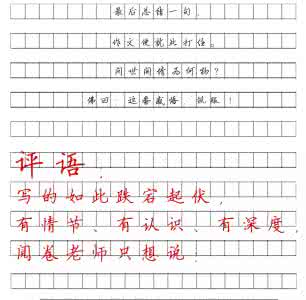 最后总结一句，
作文便就此打住。
问世间情为何物？
佛曰：这番感悟，佩服！
评语：
写的如此跌宕起伏，
有情节、有认识、有深度，
阅卷老师只想说：